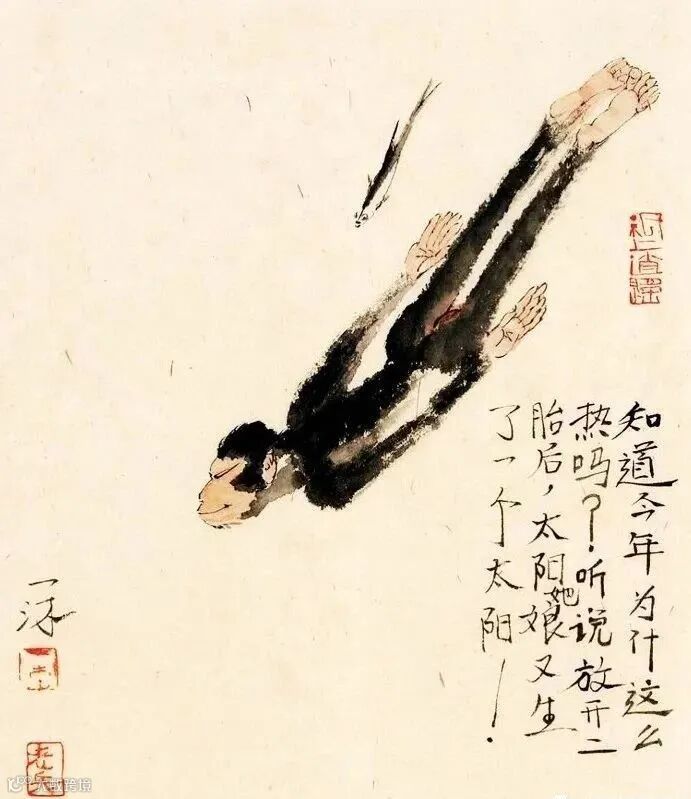 知道今年为什这么
热吗？！听说放开二
胎后，太阳她娘又生
了一个太阳！
大数跨境